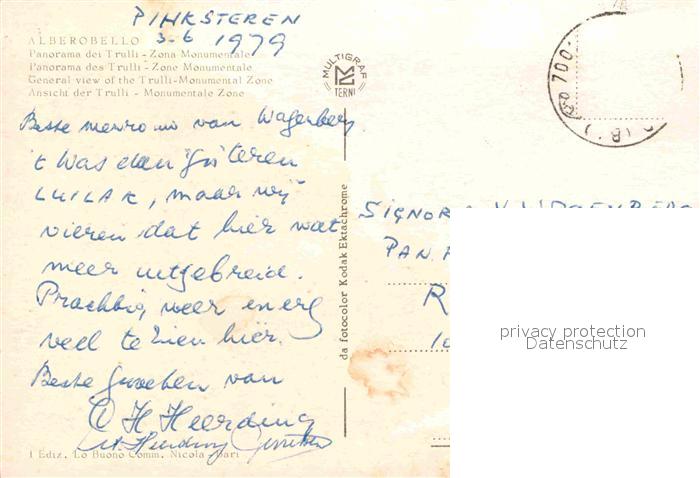 PINKSTEREN
3-6 1979
ALBEROBELLO
Panorama dei Trulli - Zona Monumentale
Panorama des Trulli - Zone Monumentale
General view of the Trulli-Monumental Zone
Ansicht der Trulli - Monumentale Zone
MULTIGRAF
TERNI
Beste van Wagenberg
't Was dan gisteren
LUILAK, maar wij
vieren dat hier wat
meer uitgebreid.
Prachtig weer en erg
veel te zien hier.
Beste groeten van
H Heerding
I Ediz. Lo Buono Comm. Nicola Bari
da fotocolor Kodak Ektachrome
700
SIGNOR
PAN.
R
privacy protection
Datenschutz